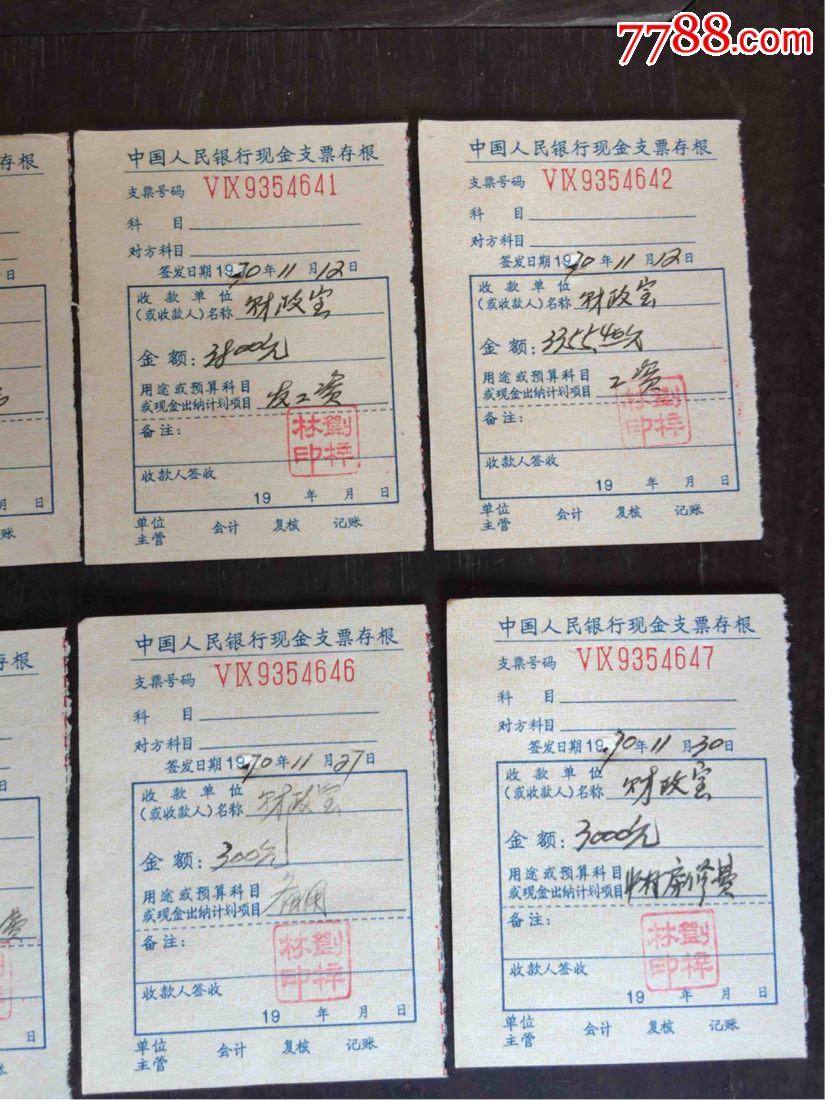 7788.com
存根
日
月 日
账
中国人民银行现金支票存根
支票号码 VIX9354641
科 目
对方科目
签发日期 1970年11月12日
收款单位
(或收款人)名称 财政室
金额: 3800元
用途或预算科目
或现金出纳计划项目 发工资
备注:
劉梓林印
收款人签收
19 年 月 日
单位
主管 会计 复核 记账
中国人民银行现金支票存根
支票号码 VIX9354642
科 目
对方科目
签发日期 1970年11月12日
收款单位
(或收款人)名称 财政室
金额: 3355.40元
用途或预算科目
或现金出纳计划项目 工资
备注:
劉梓林印
收款人签收
19 年 月 日
单位
主管 会计 复核 记账
存根
日
费
日
账
中国人民银行现金支票存根
支票号码 VIX9354646
科 目
对方科目
签发日期 1970年11月27日
收款单位
(或收款人)名称 财政室
金额: 300元
用途或预算科目
或现金出纳计划项目 备用
备注:
劉梓林印
收款人签收
19 年 月 日
单位
主管 会计 复核 记账
中国人民银行现金支票存根
支票号码 VIX9354647
科 目
对方科目
签发日期 1970年11月30日
收款单位
(或收款人)名称 财政室
金额: 3000元
用途或预算科目
或现金出纳计划项目 房修费
备注:
劉梓林印
收款人签收
19 年 月 日
单位
主管 会计 复核 记账